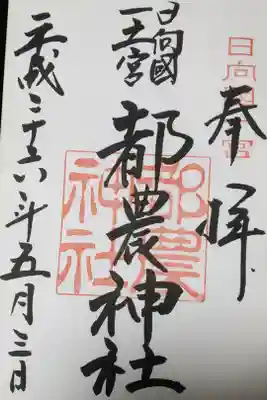 奉拝
日向国一之宮
日向國
一之宮
都農神社
都農神社
平成二十六年五月三日